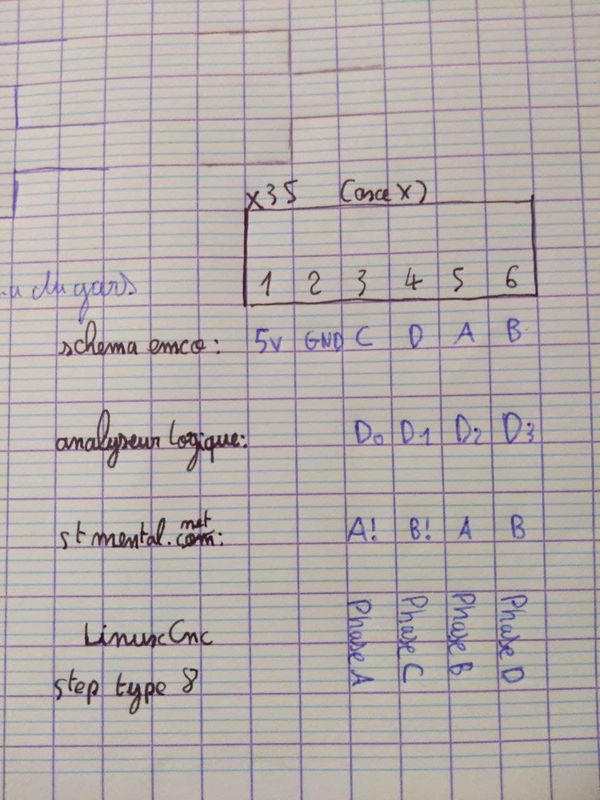 X35 (axe X)
1 2 3 4 5 6
du gars
schema emco: 5v GND C D A B
analyseur logique: D0 D1 D2 D3
st mental.net com: A! B! A B
Phase A Phase C Phase B Phase D
LinuxCnc
step type 8